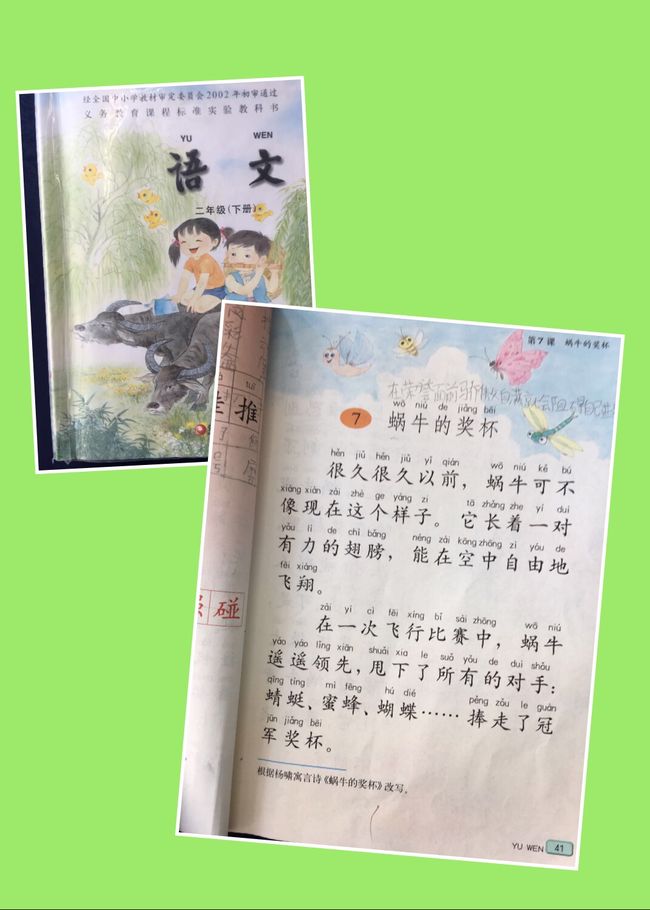 经全国中小学教材审定委员会2002年初审通过
义务教育课程标准实验教科书
YU WEN
语 文
二年级(下册)
推
碰
第7课 蜗牛的奖杯
wō niú de jiǎng bēi
7 蜗牛的奖杯
hěn jiǔ hěn jiǔ yǐ qián wō niú kě bú
很久很久以前，蜗牛可不
xiàng xiàn zài zhè ge yàng zi tā zhǎng zhe yí duì
像现在这个样子。它长着一对
yǒu lì de chì bǎng néng zài kōng zhōng zì yóu de
有力的翅膀，能在空中自由地
fēi xiáng
飞翔。
zài yí cì fēi xíng bǐ sài zhōng wō niú
在一次飞行比赛中，蜗牛
yáo yáo lǐng xiān shuǎi xia le suǒ yǒu de duì shǒu
遥遥领先，甩下了所有的对手：
qīng tíng mì fēng hú dié pěng zǒu le guàn
蜻蜓、蜜蜂、蝴蝶……捧走了冠
jūn jiǎng bēi
军奖杯。
根据杨啸寓言诗《蜗牛的奖杯》改写。
YU WEN 41